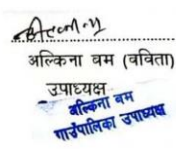 अल्किना वम (वविता)
उपाध्यक्ष
अल्किना वम
गाउँपालिका उपाध्यक्ष